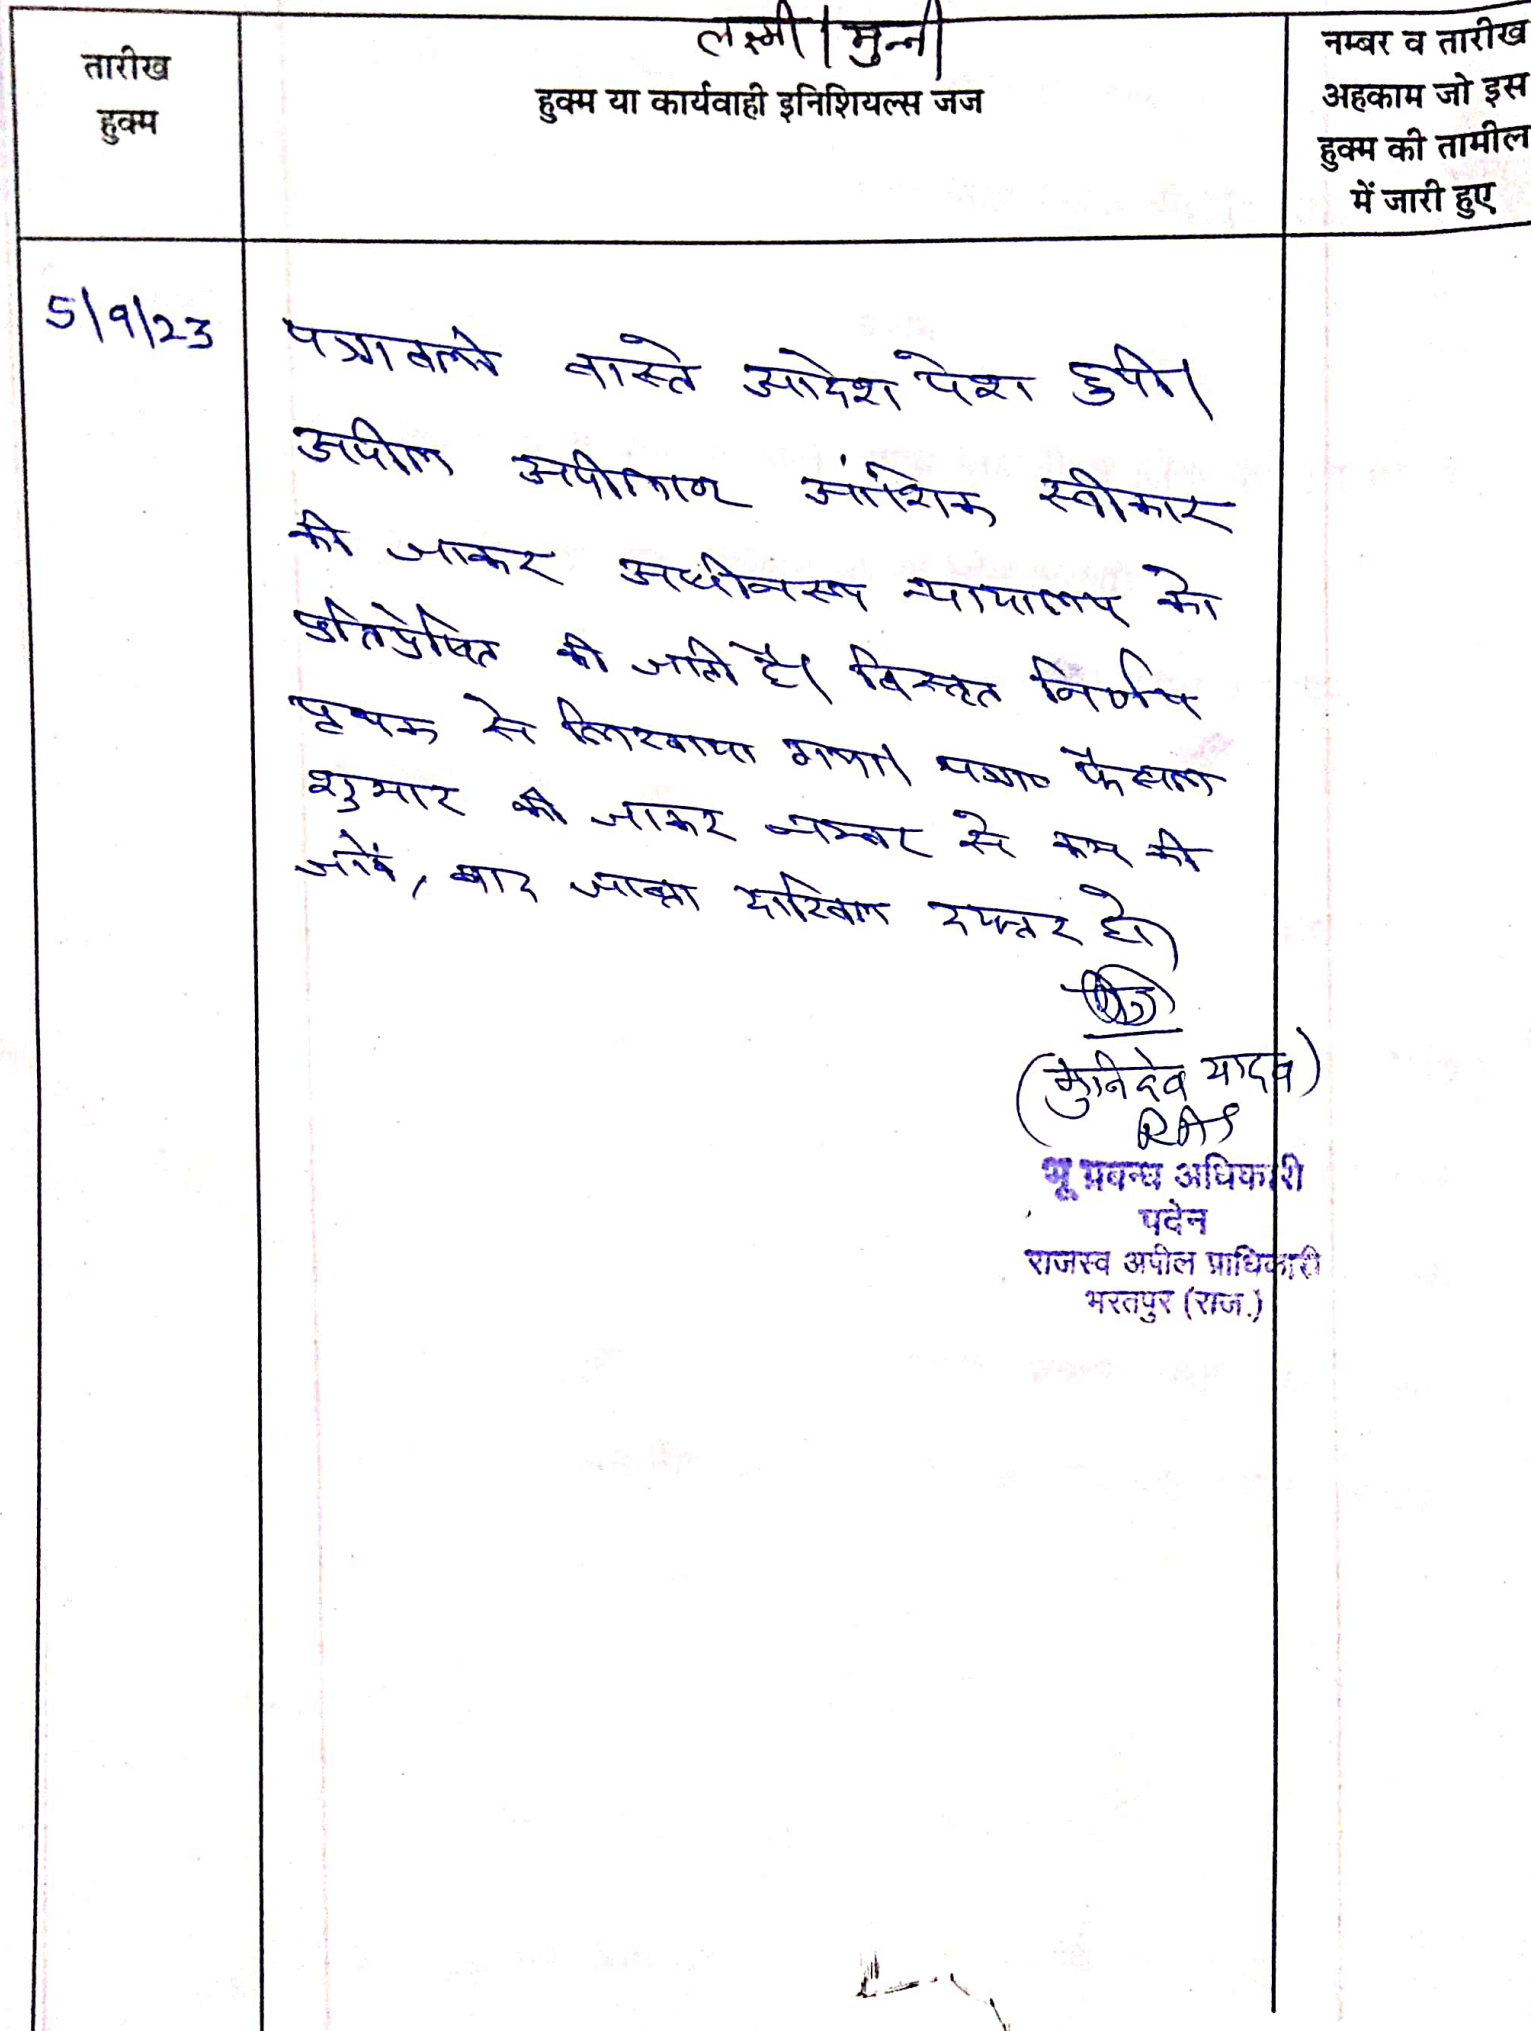 लक्ष्मी / मुन्नी
तारीख
हुक्म
हुक्म या कार्यवाही इनिशियल्स जज
नम्बर व तारीख
अहकाम जो इस
हुक्म की तामील
में जारी हुए
5/9/23
पत्रावली वास्ते आदेश पेश हुयी।
अपील अपीलाण्ट आंशिक स्वीकार
की जाकर अधीनस्थ न्यायालय को
प्रतिप्रेषित की जाती है। विस्तृत निर्णय
पृथक से लिखवाया गया। पत्रा० फैसल
शुमार की जाकर नम्बर से कम की
जावें, बाद जाब्ता दाखिल दफ्तर हो।
(मुनिदेव यादव)
RAS
भू प्रबन्ध अधिकारी
पदेन
राजस्व अपील प्राधिकारी
भरतपुर (राज.)